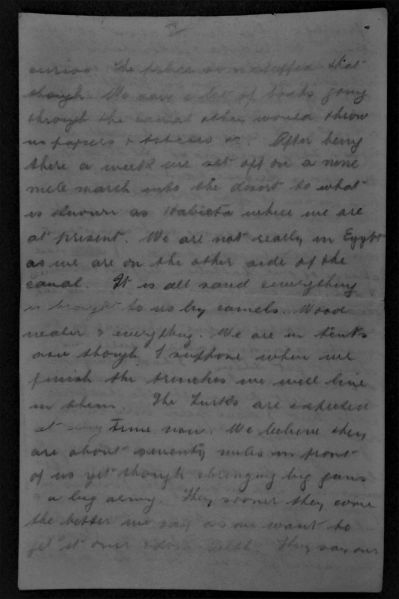 curios. The place soon stopped that
though. We saw a lot of boats going
through the canal others would throw
us papers & tobacco &c. After being
there a week we set off on a nine
mile march into the desert to what
is known as Habieta where we are
at present. We are not really in Egypt
as we are on the other side of the
canal. It is all sand everything
is brought to us by camels. Wood
water & everything. We are in tents
now though I suppose when we
finish the trenches we will live
in them. The Turks are expected
at any time now. We believe they
are about seventy miles in front
of us yet though bringing big guns
& a big army. They sooner they come
the better we say as we want to
get it over with They say our